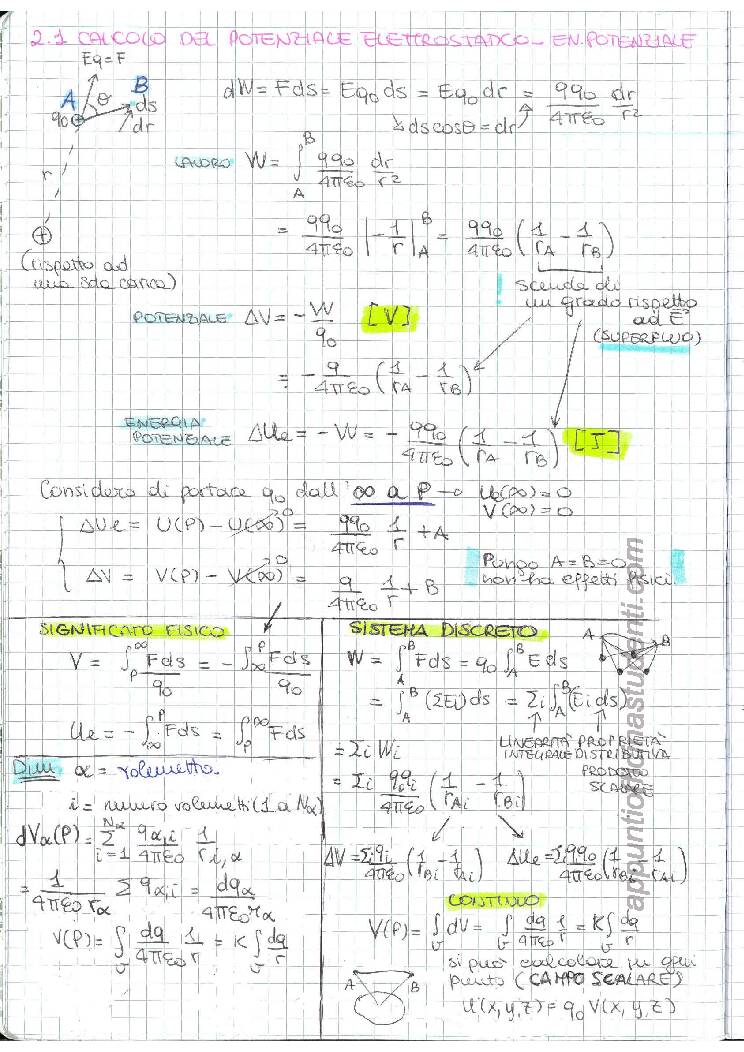 2.1 CALCOLO DEL POTENZIALE ELETTROSTATICO - EN. POTENZIALE
Eq = F
A θ B
q₀ ⊕ ds
dr
r
⊕
(rispetto ad
una sola carica)
dW = Fds = Eq₀ ds = Eq₀ dr = qq₀/4πε₀ dr/r²
↘ dscosθ = dr
LAVORO W = ∫_A^B qq₀/4πε₀ dr/r²
= qq₀/4πε₀ |-1/r|_A^B = qq₀/4πε₀ (1/r_A - 1/r_B)
! scende di
un grado rispetto
ad E
(SUPERFLUO)
POTENZIALE ΔV = - W/q₀ [V]
= - q/4πε₀ (1/r_A - 1/r_B)
ENERGIA
POTENZIALE ΔUe = - W = - qq₀/4πε₀ (1/r_A - 1/r_B) [J]
Considero di portare q₀ dall'∞ a P → U(∞) = 0
V(∞) = 0
ΔUe = U(P) - U(∞)⁰ = qq₀/4πε₀ 1/r + A
ΔV = V(P) - V(∞)⁰ = q/4πε₀ 1/r + B
Pongo A = B = 0
non ha effetti fisici.
SIGNIFICATO FISICO
V = ∫_P^∞ Fds/q₀ = - ∫_∞^P Fds/q₀
Ue = - ∫_∞^P Fds = ∫_P^∞ Fds
Dim α = volumetto
i = numero volumetti (1 a Nα)
dVα(P) = Σ_{i=1}^{Nα} qα,i/4πε₀ 1/r i,α
= 1/4πε₀rα Σ qα,i = dqα/4πε₀rα
V(P) = ∫_τ dq/4πε₀ 1/r = K ∫_τ dq/r
SISTEMA DISCRETO
A B
W = ∫_A^B Fds = q₀ ∫_A^B Eds
= ∫_A^B (ΣEi) ds = Σi ∫_A^B (Ei ds)
LINEARITÀ INTEGRALE
PROPRIETÀ DISTRIBUTIVA PRODOTTO SCALARE
= Σi Wi
= Σi q₀qi/4πε₀ (1/r_Ai - 1/r_Bi)
ΔV = Σi qi/4πε₀ (1/r_Bi - 1/r_Ai) ΔUe = Σi qiq₀/4πε₀ (1/r_Bi - 1/r_Ai)
CONTINUO
V(P) = ∫_τ dV = ∫_τ dq/4πε₀ 1/r = K ∫_τ dq/r
si può calcolare in ogni
punto (CAMPO SCALARE)
U(x,y,z) = q₀ V(x,y,z)
A B
appuntiofficinastudenti.com